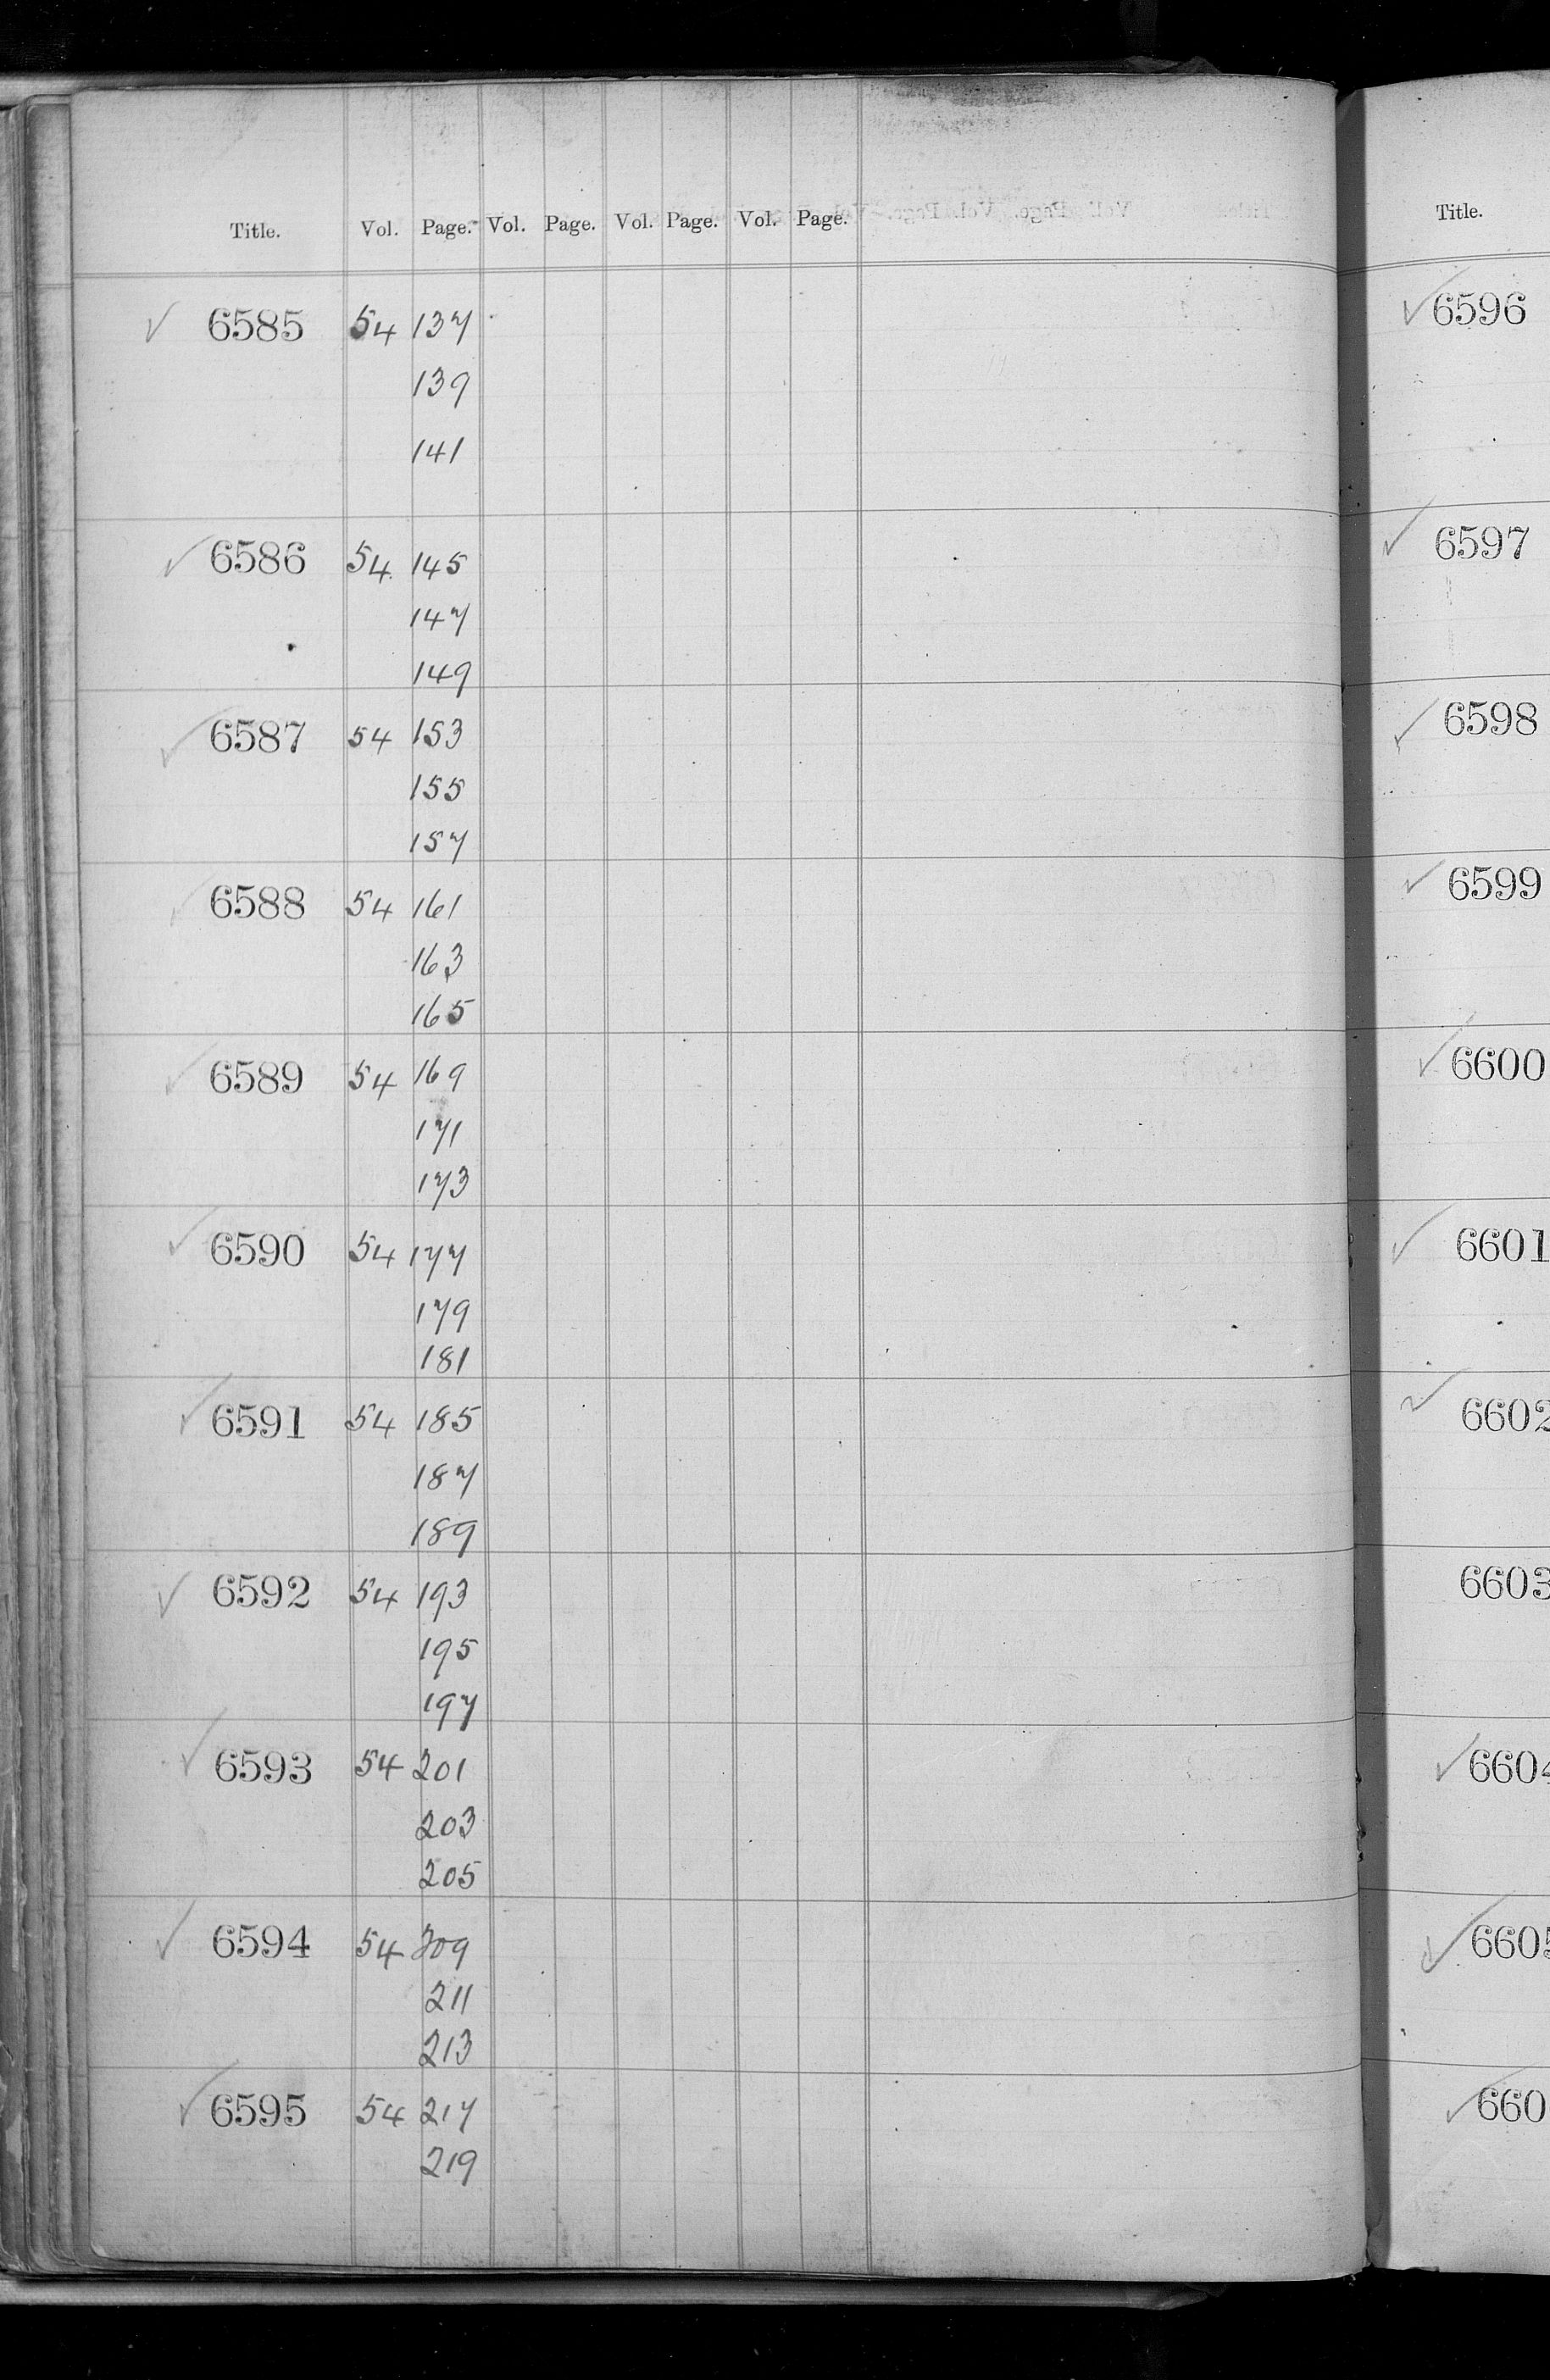 Title. Vol. Page. Vol. Page. Vol. Page. Vol. Page.
✓ 6585 54 137
139
141
✓ 6586 54 145
147
149
✓ 6587 54 153
155
157
✓ 6588 54 161
163
165
✓ 6589 54 169
171
173
✓ 6590 54 177
179
181
✓ 6591 54 185
187
189
✓ 6592 54 193
195
197
✓ 6593 54 201
203
205
✓ 6594 54 209
211
213
✓ 6595 54 217
219
Title.
✓ 6596
✓ 6597
✓ 6598
✓ 6599
✓ 6600
✓ 6601
✓ 6602
6603
✓ 6604
✓ 6605
✓ 660